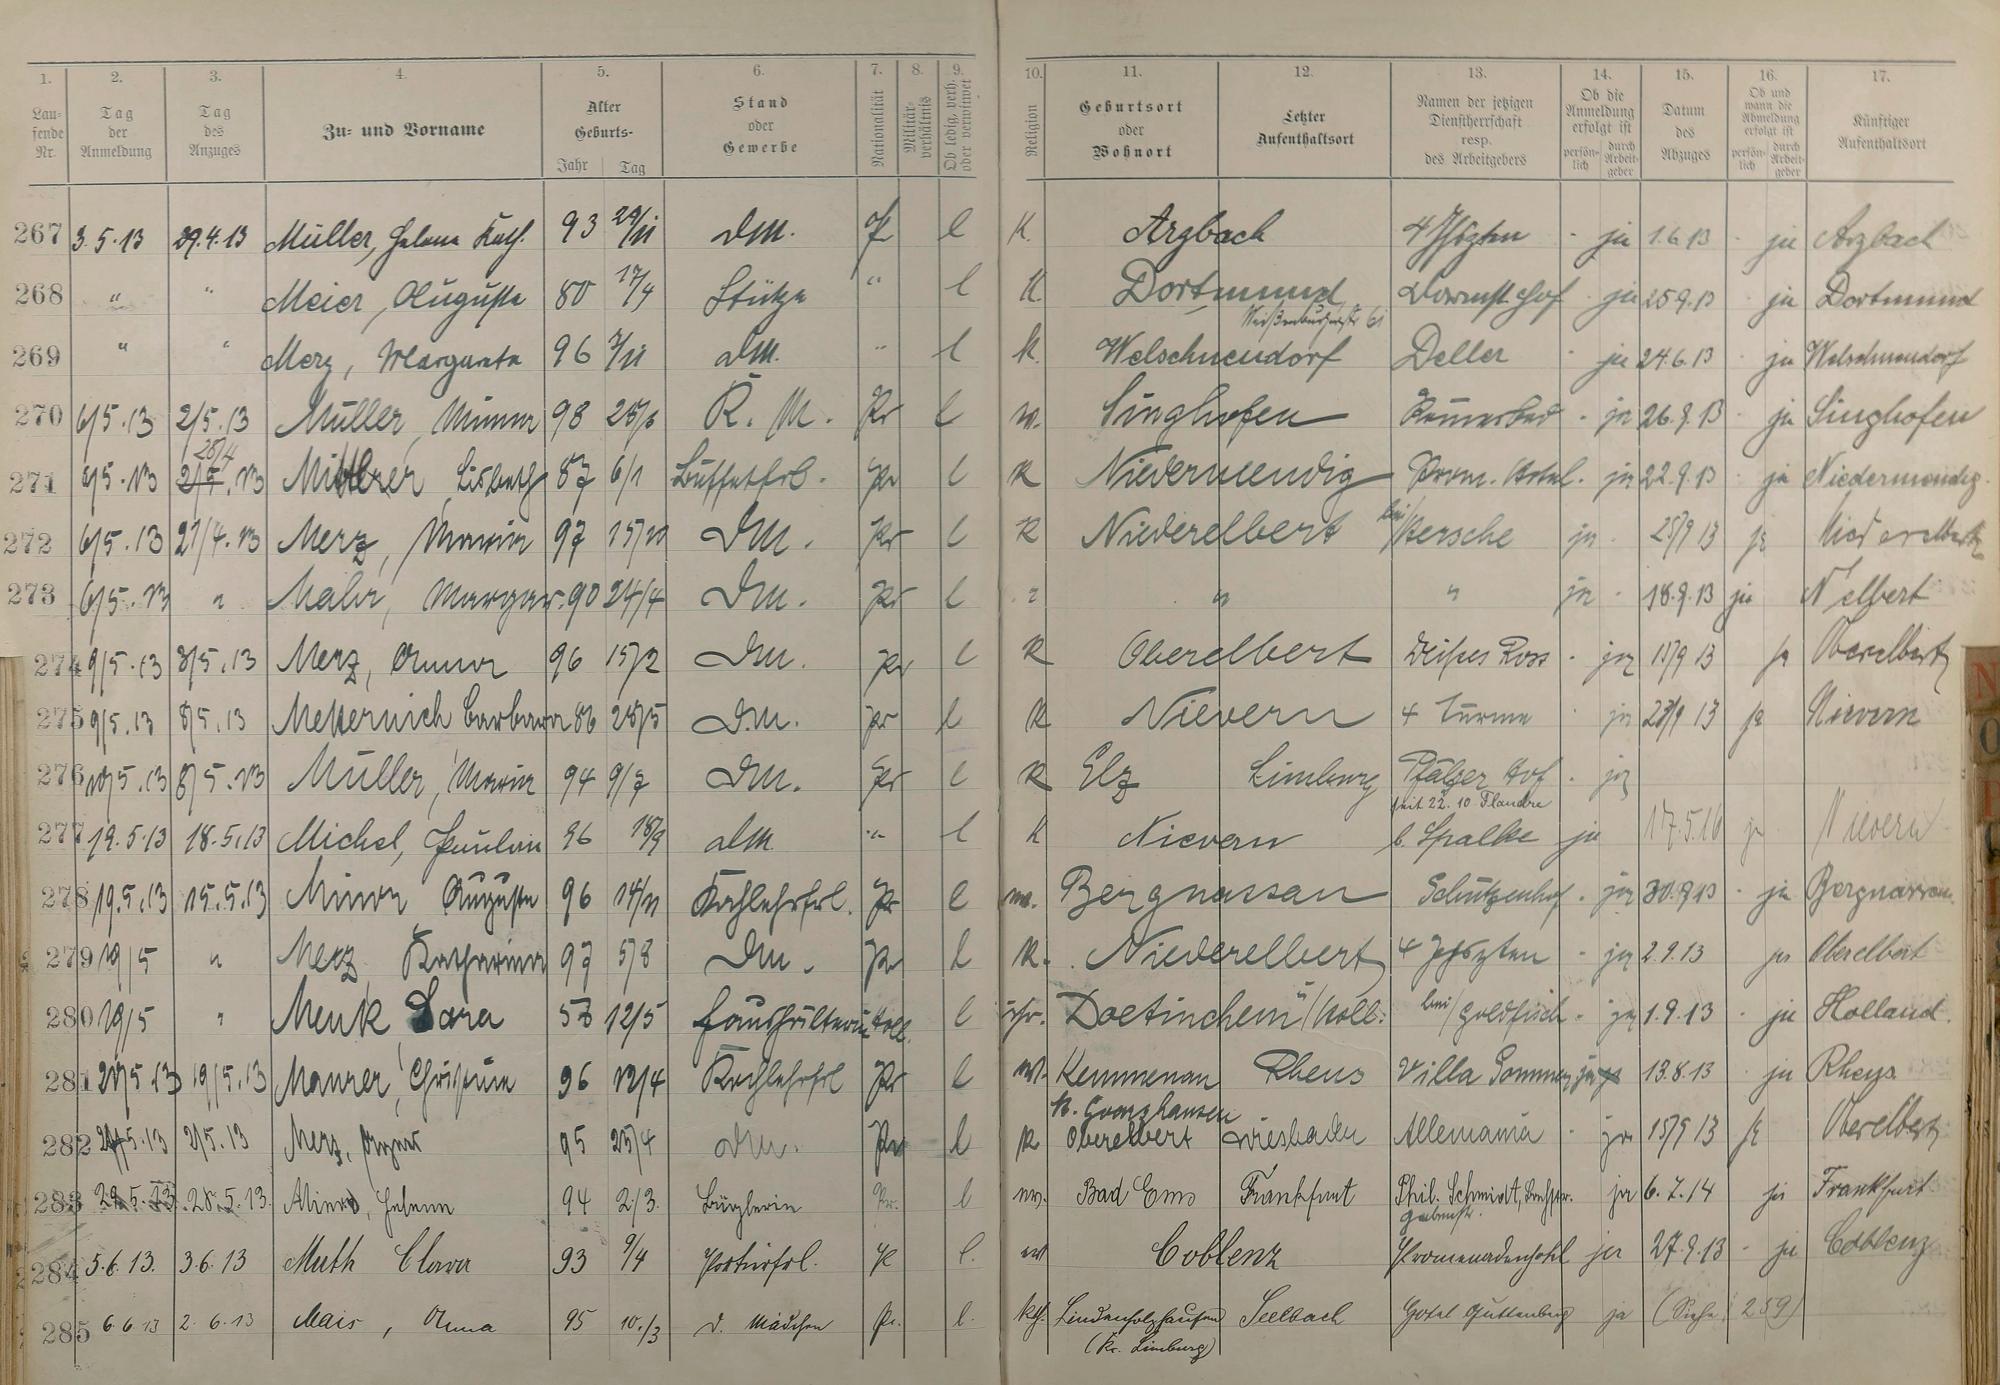 1. 2. 3. 4. 5. 6. 7. 8. 9. 10. 11. 12. 13. 14. 15. 16. 17.
Lau-
fende
Nr.
Tag
der
Anmeldung
Tag
des
Anzuges
Zu- und Vorname
Alter
Geburts-
Jahr Tag
Stand
oder
Gewerbe
Nationalität
Militär-
verhältnis
Ob ledig, verh.
oder verwitwet
Religion
Geburtsort
oder
Wohnort
Letzter
Aufenthaltsort
Namen der jetzigen
Dienstherrschaft
resp.
des Arbeitgebers
Ob die
Anmeldung
erfolgt ist
persön-
lich
durch
Arbeit-
geber
Datum
des
Abzuges
Ob und
wann die
Abmeldung
erfolgt ist
persön-
lich
durch
Arbeit-
geber
Künftiger
Aufenthaltsort
267 3.5.13 29.4.13 Müller, Helene Kath. 93 29/11 DM. l K. Arzbach 4 - ja 1.6.13 - ja Arzbach
268 " " Meier, Auguste 80 17/4 Stütze " l K. Dortmund Darmst. Hof - ja 25.9.13 ja Dortmund
61
269 " " Merz, Margareta 96 7/11 DM. " l K. Welschneudorf Deller - ja 24.6.13 ja Welschneudorf
270 6/5.13 2/5.13 Müller, Minna 98 K. M. Pr l w. Singhofen Römerbad - ja 26.9.13 - ja Singhofen
28/4
271 6/5.13 2/5.13 Lisbeth 87 6/1 Buffetfrl. Pr l K Niedermendig Prom. Hotel - ja 22.9.13 ja Niedermendig
272 6/5.13 27/4.13 Merz, Maria 97 15/10 DM. Pr l K Niederelbert bei/ ja - 25/9 13 ja Niederelbert
273 6/5.13 " Margar. 90 24/4 DM. Pr l " " " ja - 18.9.13 ja N'elbert
274 9/5.13 8/5.13 Merz, Anna 96 15/2 DM. Pr l K Oberelbert Weißes Ross - ja 15/9 13 ja Oberelbert
275 9/5.13 8/5.13 Metternich Barbara 86 28/5 DM. Pr l K Nievern 4 Türme ja 23/9 13 ja Nievern
276 10/5.13 8/5.13 Müller, Maria 94 9/7 DM. Pr l K Elz Limburg Pfälzer Hof - ja
seit 22.10 Flandre
277 19.5.13 18.5.13 Michel, Paulin 96 18/9 DM " l K Nievern b. Spalke ja 17.5.16 ja Nievern
278 19.5.13 15.5.13 Minor Auguste 96 14/11 Kochlehrfrl. Pr l w. Bergnassau Schützenhof - ja 30.9.13 - ja Bergnassau
279 19/5 " Merz Katharina 97 5/8 DM. Pr l K. Niederelbert 4 - ja 2.9.13 ja Oberelbert
280 19/5 " Menk Sara 57 12/5 Haushälterin Holl. l isr. Doetinchem /Holl. bei/ Goldfisch - ja 1.9.13 - ja Holland.
281 19/5.13 Maurer, Christine 96 Kochlehrfrl Pr l w. Kemmenau Rhens Villa Sommer ja 13.8.13 - ja Rhens
282 2/5.13 Merz, Agnes 95 25/4 DM. Pr l K Oberelbert Wiesbaden Allemania - ja 15/9 13 ja Oberelbert
283 29.5.13 28.5.13. Minor, Helene 94 2/3. Büglerin Pr. l w. Bad Ems Frankfurt Phil. Schmidt, ja 6.7.14 ja Frankfurt
284 5.6.13. 3.6.13 Muth Clara 93 9/4 l. w Coblenz Promenadenhotel ja 27.9.13 - ja Coblenz
285 6.6.13 2.6.13 Mais, Anna 95 10./3 D. Mädchen Pr. l. Kth. Lindenholzhausen Seelbach Hotel Guttenberg ja (Siehe 259)
(Kr. Limburg)